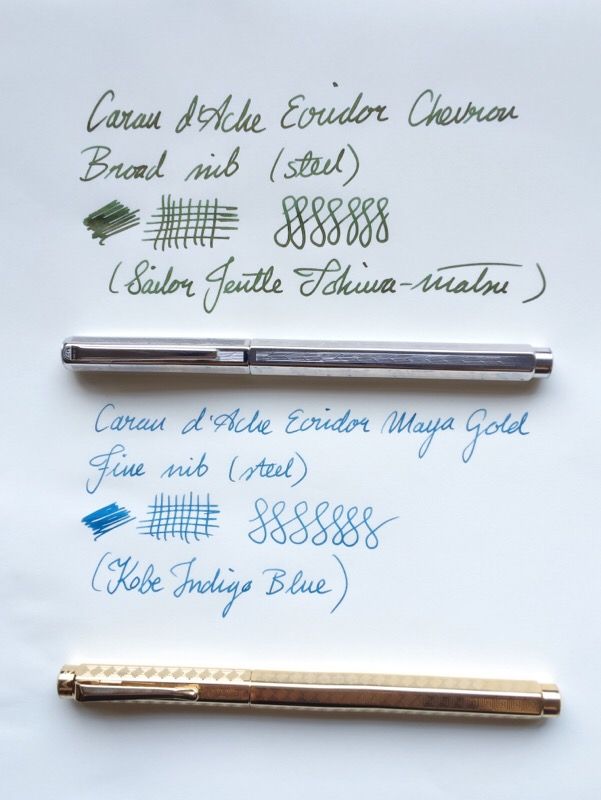 Caran d'Ache Ecridor Chevron
Broad nib (steel)
(Sailor Jentle Tokiwa-matsu)
Caran d'Ache Ecridor Maya Gold
Fine nib (steel)
(Kobe Indigo Blue)